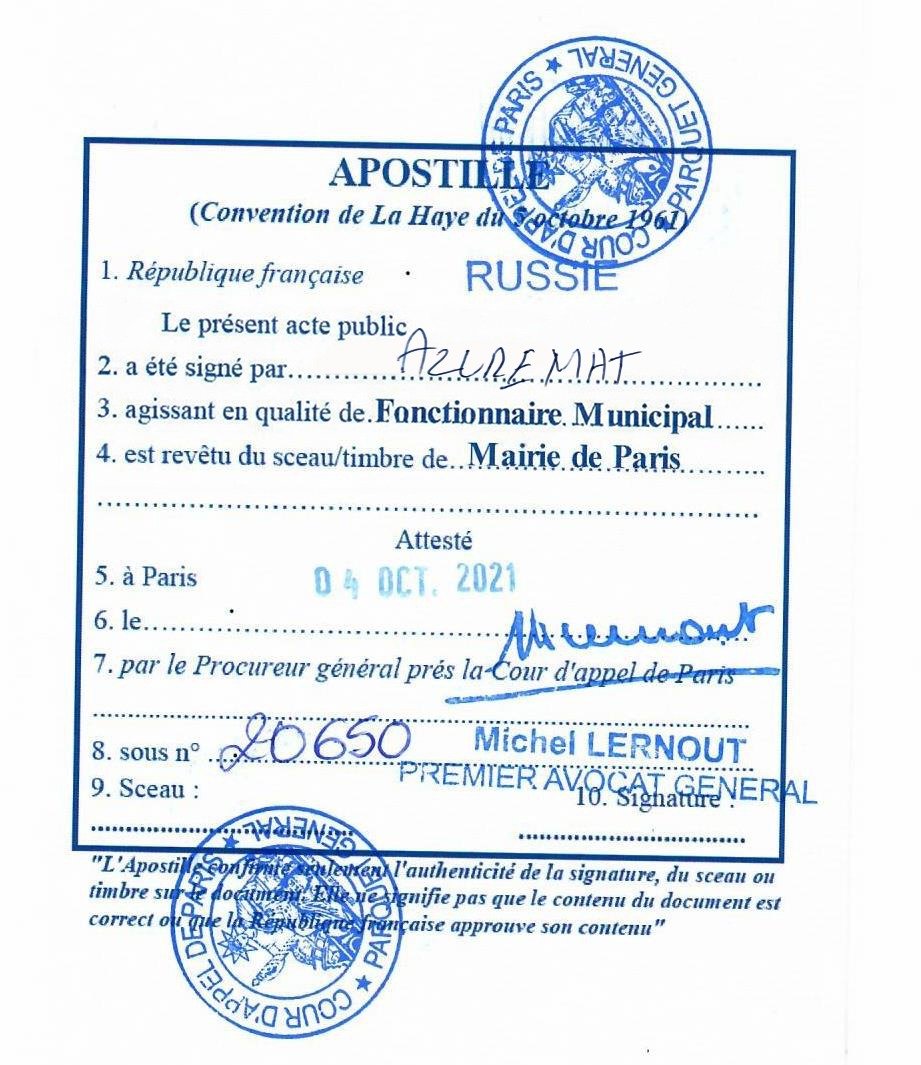 APOSTILLE
(Convention de La Haye du 5 octobre 1961)
1. République française
RUSSIE
Le présent acte public
2. a été signé par AZUREMAT
3. agissant en qualité de Fonctionnaire Municipal
4. est revêtu du sceau/timbre de Mairie de Paris
Attesté
5. à Paris
04 OCT. 2021
6. le
7. par le Procureur général prés la Cour d'appel de Paris
8. sous n° 20650
Michel LERNOUT
PREMIER AVOCAT GENERAL
9. Sceau :
10. Signature :
"L'Apostille confirme seulement l'authenticité de la signature, du sceau ou
timbre sur le document. Elle ne signifie pas que le contenu du document est
correct ou que la République française approuve son contenu"
COUR D'APPEL DE PARIS ★ PARQUET GENERAL ★
COUR D'APPEL DE PARIS ★ PARQUET GENERAL ★